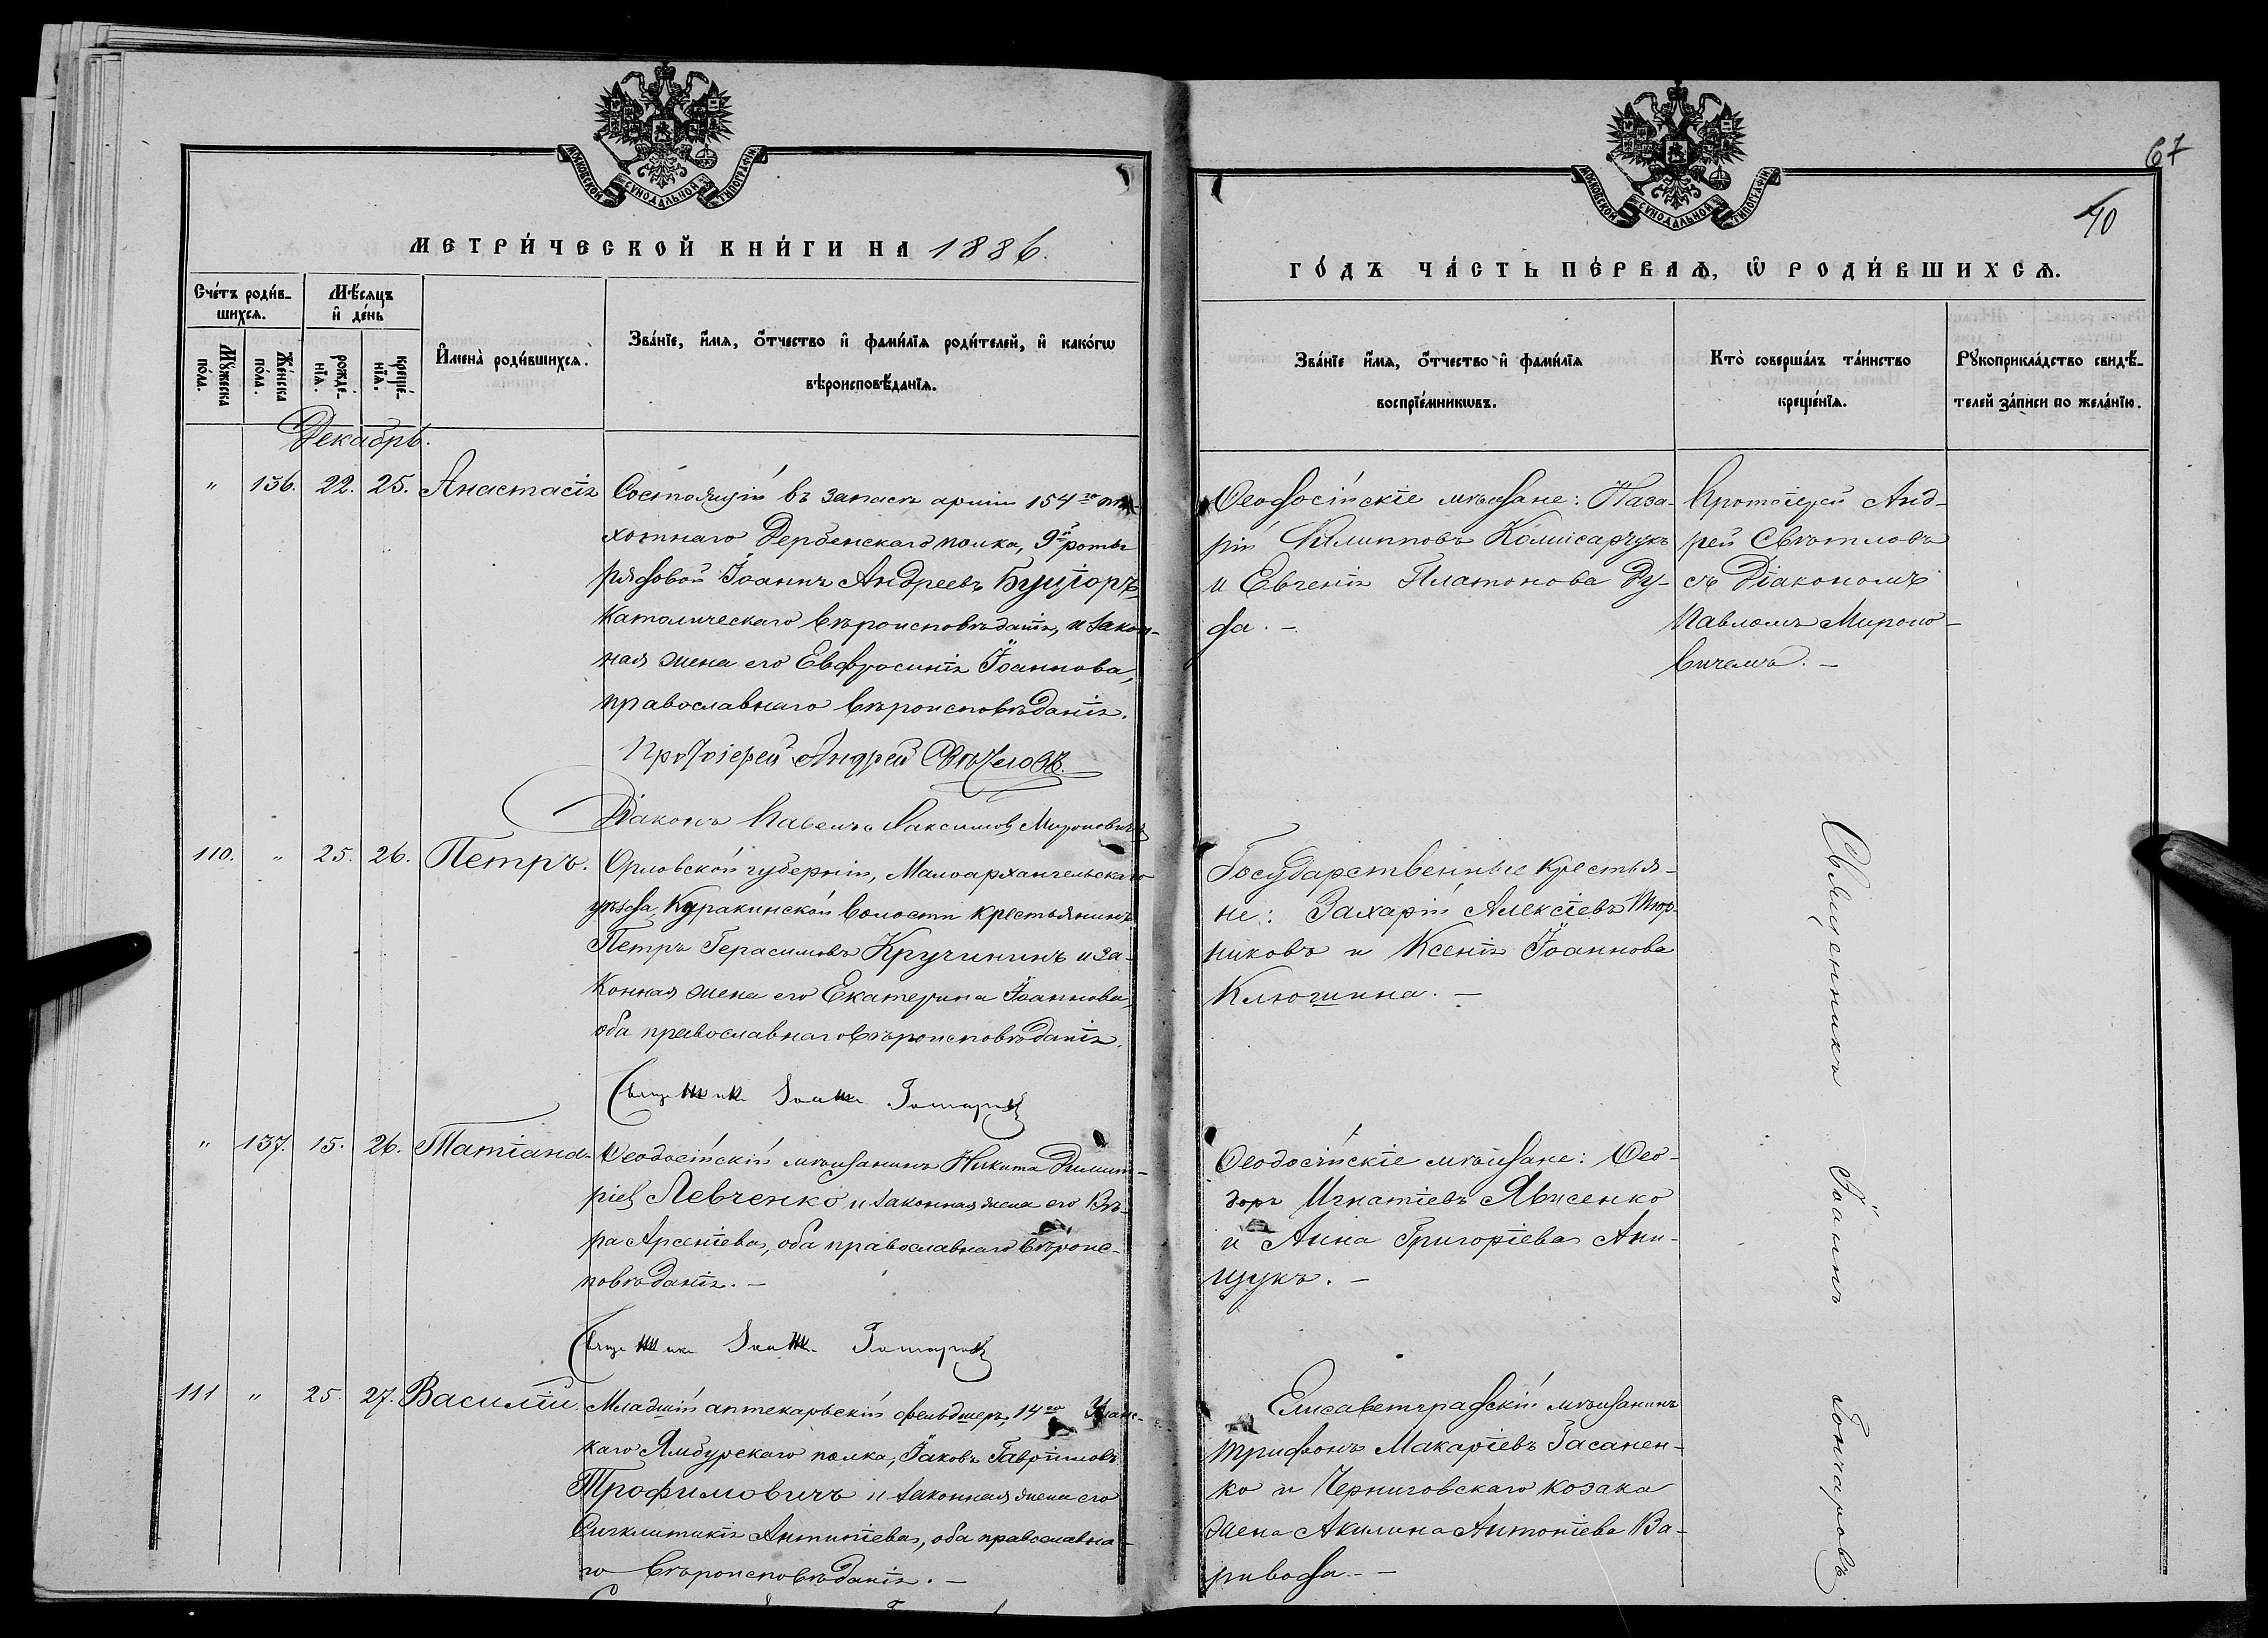 МОСКОВСКОЙ СѴНОДАЛЬНОЙ ТИПОГРАФІИ
МЕТРИ́ЧЕСКОЙ КНИ́ГИ НА 1886.
Сче́тъ роди́в-
шихсѧ.
Мѣ́сѧцъ
и҆ де́нь
Мꙋ́жеска
по́ла.
Же́нска
по́ла.
рожде́-
нїѧ.
креще́-
нїѧ.
И҆мена̀ роди́вшихсѧ.
Зва́нїе, и҆́мѧ, ѻ҆́тчество и҆ фами́лїѧ роди́телей, и҆ како́гѡ
вѣроисповѣ́данїѧ.
Декабрь.
" 136. 22. 25. Анастасія
Состоящій въ запасѣ арміи 154го пѣ-
хотнаго Дербенскаго полка, 9й роты
рядовой Іоаннъ Андреевъ Буціоръ,
католическаго вѣроисповѣданія, и закон-
ная жена его Евфросинія Іоаннова,
православнаго вѣроисповѣданія.
Протоіерей Андрей Свѣтловъ.
Діаконъ Павелъ Максимов Мироновичъ
110. " 25. 26. Петръ.
Орловской губерніи, Малоархангельскаго
уѣзда, Куракинской волости крестьянинъ
Петръ Герасимовъ Кручининъ и за-
конная жена его Екатерина Іоаннова
оба православнаго вѣроисповѣданія.
Священникъ Іоаннъ Гончаровъ
" 137. 15. 26. Татіана.
Ѳеодосійскій мѣщанинъ Никита Димит-
ріев Левченко и законная жена его Вѣ-
ра Арсеніева, оба православнаго вѣроис-
повѣданія. —
Священникъ Іоаннъ Гончаровъ
111 " 25. 27. Василій.
Младшій аптекарьскій фельдшеръ, 14го Уланс-
каго Ямбурскаго полка, Іаковъ Гавріиловъ
Трофимовичъ и законная жена его
Сигклитикія Антипіева, оба православна-
го вѣроисповѣданія. —
67
40
МОСКОВСКОЙ СѴНОДАЛЬНОЙ ТИПОГРАФІИ
ГО́ДЪ ЧА́СТЬ ПЕ́РВАѦ, Ѡ҆ РОДИ́ВШИХСѦ.
Зва́нїе и҆́мѧ, ѻ҆́тчество и҆ фами́лїѧ
воспрїе́мникѡвъ.
Кто̀ соверша́лъ та́инство
креще́нїѧ.
Рꙋкоприкла́дство свидѣ́-
телей за́писи по жела́нїю.
Ѳеодосійскіе мѣщане: Наза-
рій Филипповъ Комисарчукъ
и Евгенія Платонова Ду-
да. —
Протоіерей Анд-
рей Свѣтловъ
съ Діакономъ
Павломъ Мироно-
вичемъ. —
Государственные крестья-
не: Захарій Алексіевъ Тюр-
никовъ и Ксенія Іоаннова
Клюшина. —
Ѳеодосійскіе мѣщане: Ѳео-
доръ Игнатіевъ Явисенко
и Анна Григоріева Ани-
щукъ. —
Елисаветградскій мѣщанинъ
Трифонъ Макаріевъ Гасанен-
ко и Черниговскаго козака
жена Акилина Антоніева Ва-
ривода. —
Священникъ Іоаннъ Гончаровъ